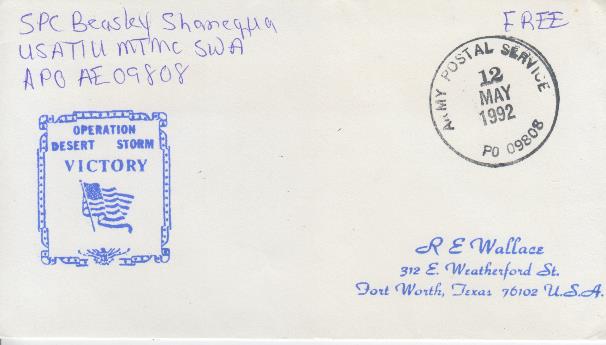 SPC Beasley Shanequa
USATTU MTMC SWA
APO AE 09808
FREE
ARMY POSTAL SERVICE
12
MAY
1992
PO 09808
OPERATION
DESERT STORM
VICTORY
R E Wallace
312 E. Weatherford St.
Fort Worth, Texas 76102 U.S.A.